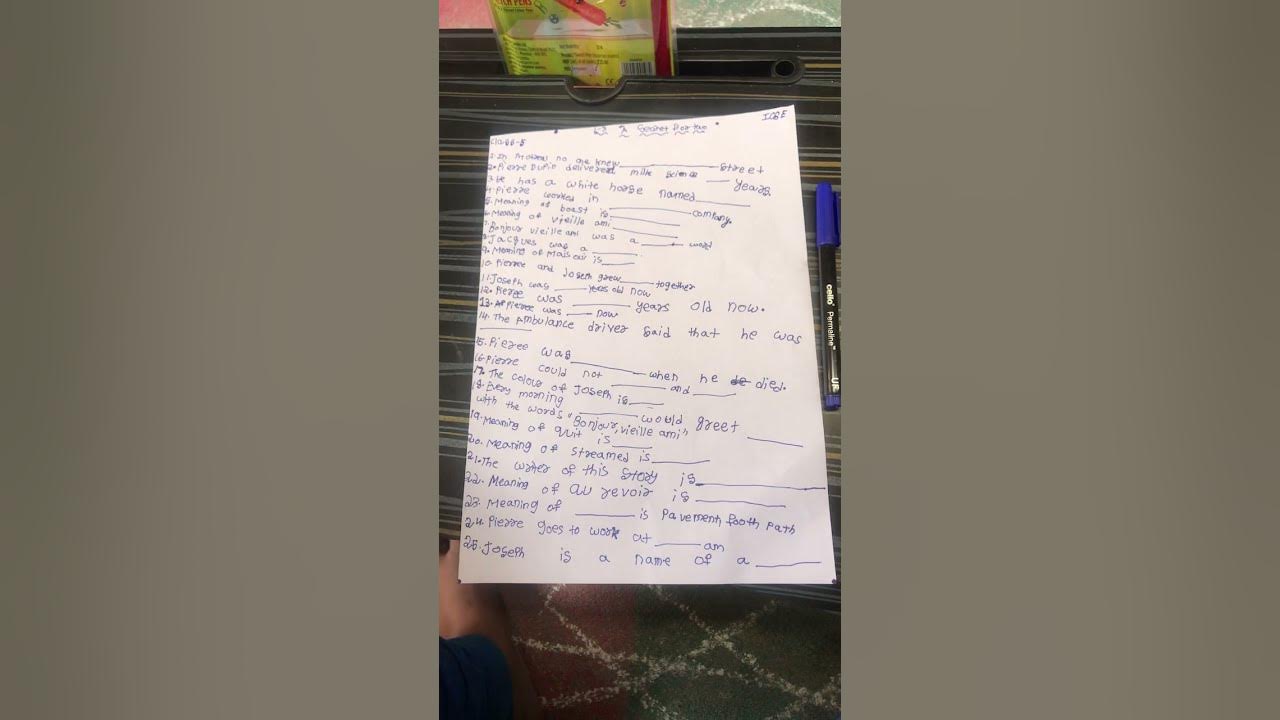 TCH PENS
ICSE
L-2 A Secret For two
Class-5
1. In Motreal no one knew ________ Street
2. Pierre Dupin delivered milk Science ___ years
3. He has a white horse named ________
4. Pierre worked in ________ company.
5. Meaning of boast is ________
6. Meaning of vieille ami ________
7. Bonjour vieille ami was a ______ word
8. Jacques was a ______
9. Meaning of Mais oui is ____
10. Pierre and Joseph grew ____ together
11. Joseph was ____ years old now
12. Pierre was ______ years old now.
13. Pierre was ____ now
14. The Ambulance driver said that he was
______
15. Pieree was ________ when he died.
16. Pierre could not ______ and ____
17. The colour of Joseph is ____
18. Every morning ______ would greet ______
with the words "Bonjour, vieille ami"
19. Meaning of quit is ____
20. Meaning of streamed is ______
21. The writer of this story is ____________
22. Meaning of au revoir is ________
23. Meaning of ______ is Pavement footh path
24. Pierre goes to work at _____ am
25. Joseph is a name of a ______
cello Permaline